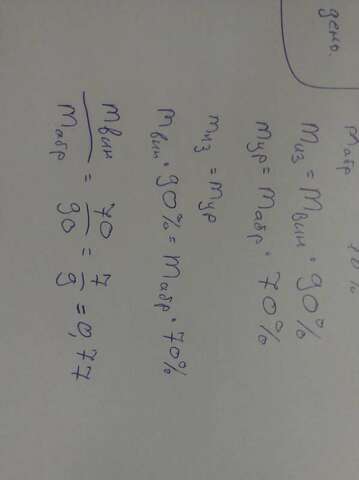 дено.
m абр 70%
m из = m вин · 90%
m ур = m абр · 70%
m из = m ур
m вин · 90% = m абр · 70%
m вин / m абр = 70/90 = 7/9 = 0,77